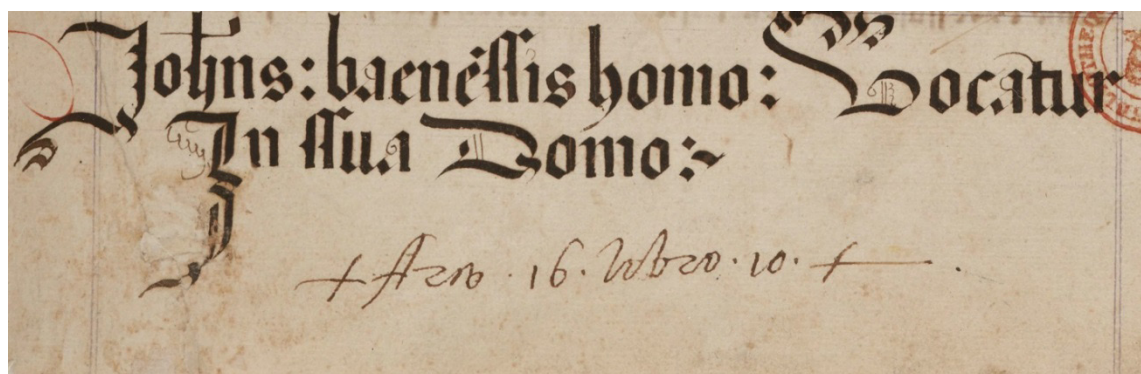 Johns: baenēssis homo: Vocatur
In ssua Domo:~
+ Arco · 16 · libro · 10 · +